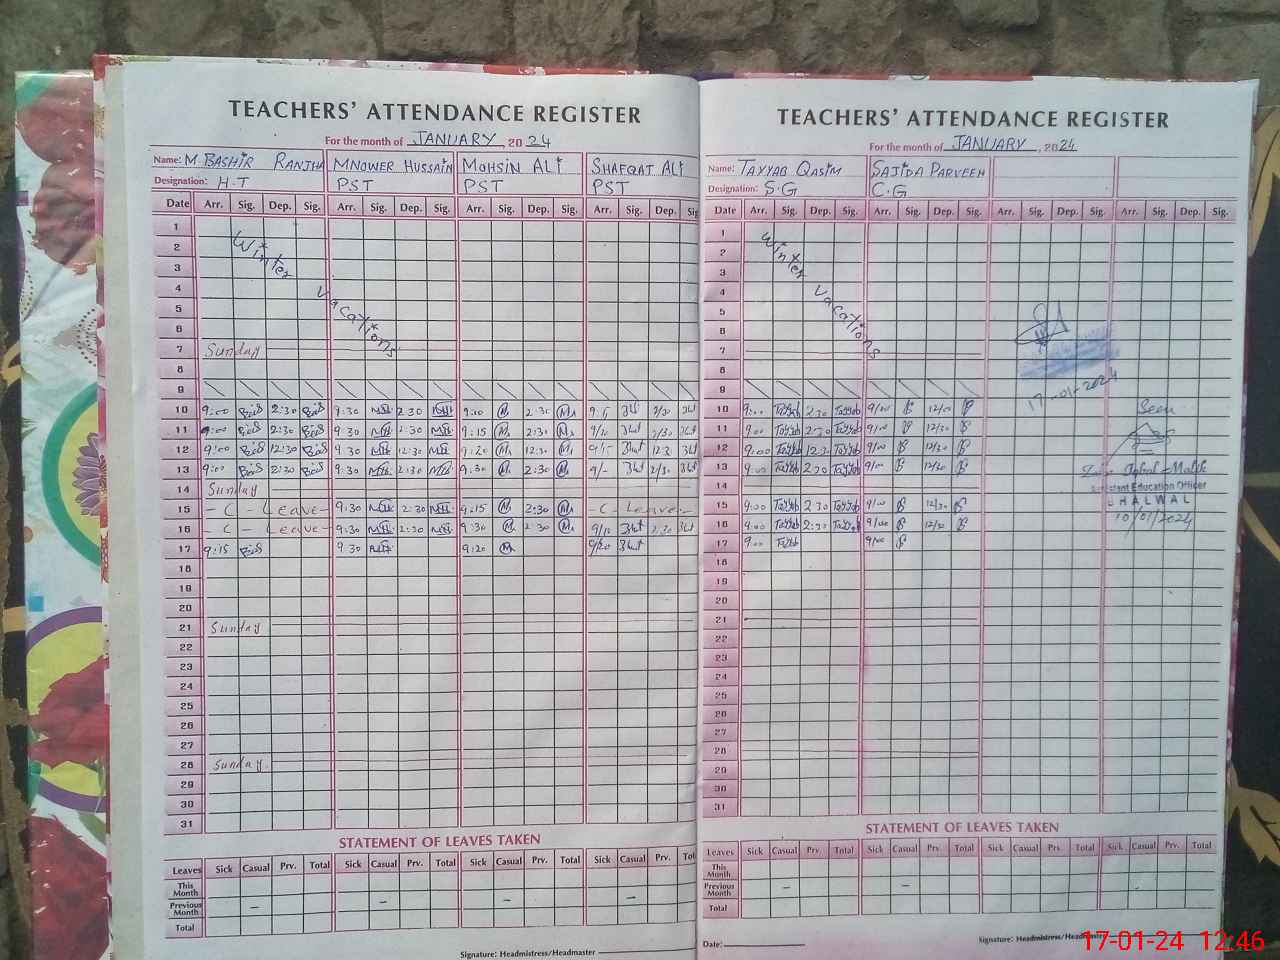 TEACHERS' ATTENDANCE REGISTER
For the month of JANUARY, 2024
Name: M BASHIR RANJHA MNOWER HUSSAIN MOHSIN ALI SHAFQAT ALI
Designation: H.T PST PST PST
Date Arr. Sig. Dep. Sig. Arr. Sig. Dep. Sig. Arr. Sig. Dep. Sig. Arr. Sig. Dep. Sig
1
2
3
4
5
6
Winter Vacations
7 Sunday
8
9
10 9:00 2:30 9:30 2:30 9:10 2:30
11 9:00 2:30 9:30 2:30 9:15 2:30 9/10 2/30
12 9:00 12:30 9:30 12:30 9:20 12:30
13 9:00 2:30 9:30 2:30 9:30 2:30 2/30
14 Sunday
15 - C - Leave - 9:30 2:30 9:15 2:30 - C - Leave -
16 - C - Leave - 9:30 2:30 9:30 2:30 9/10 2:30
17 9:15 9:30 9:20 9/20
18
19
20
21 Sunday
22
23
24
25
26
27
28 Sunday
29
30
31
STATEMENT OF LEAVES TAKEN
Leaves Sick Casual Prv. Total Sick Casual Prv. Total Sick Casual Prv. Total Sick Casual Prv.
This Month
Previous Month - - - -
Total
Signature: Headmistress/Headmaster
TEACHERS' ATTENDANCE REGISTER
For the month of JANUARY, 2024
Name: TAYYAB QASIM SAJIDA PARVEEN
Designation: S.G C.G
Date Arr. Sig. Dep. Sig. Arr. Sig. Dep. Sig. Arr. Sig. Dep. Sig. Arr. Sig. Dep. Sig.
1
2
3
4
5
6
Winter Vacations
7
8
9
17-01-2024
10 9:00 Tayyab 2:30 Tayyab 9/00 12/30
Seen
11 9:00 Tayyab 2:30 Tayyab 9/00 12/30
12 9:00 Tayyab 12:30 Tayyab 9/00 12/30
13 9:00 Tayyab 2:30 Tayyab 9/00 12/30
Iqbal Malik
14
Assistant Education Officer
BHALWAL
15 9:00 Tayyab 2:30 Tayyab 9/00 12/30
10/01/2024
16 9:00 Tayyab 2:30 Tayyab 9/00 12/30
17 9:00 Tayyab 9/00
18
19
20
21
22
23
24
25
26
27
28
29
30
31
STATEMENT OF LEAVES TAKEN
Leaves Sick Casual Prv. Total Sick Casual Prv. Total Sick Casual Prv. Total Sick Casual Prv. Total
This Month
Previous Month - - -
Total
Date:
Signature: Headmistress/Headmaster
17-01-24 12:46